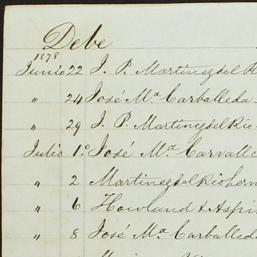 Debe
1878
Junio 22 J. P. Martinez del R
" 24 José Mª Carballeda
" 29 J. P. Martinez del Rio
Julio 1º José Mª Carvalle
" 2 Martinez del Rio hern
" 6 Howland & Aspi
" 8 José Mª Carballeda